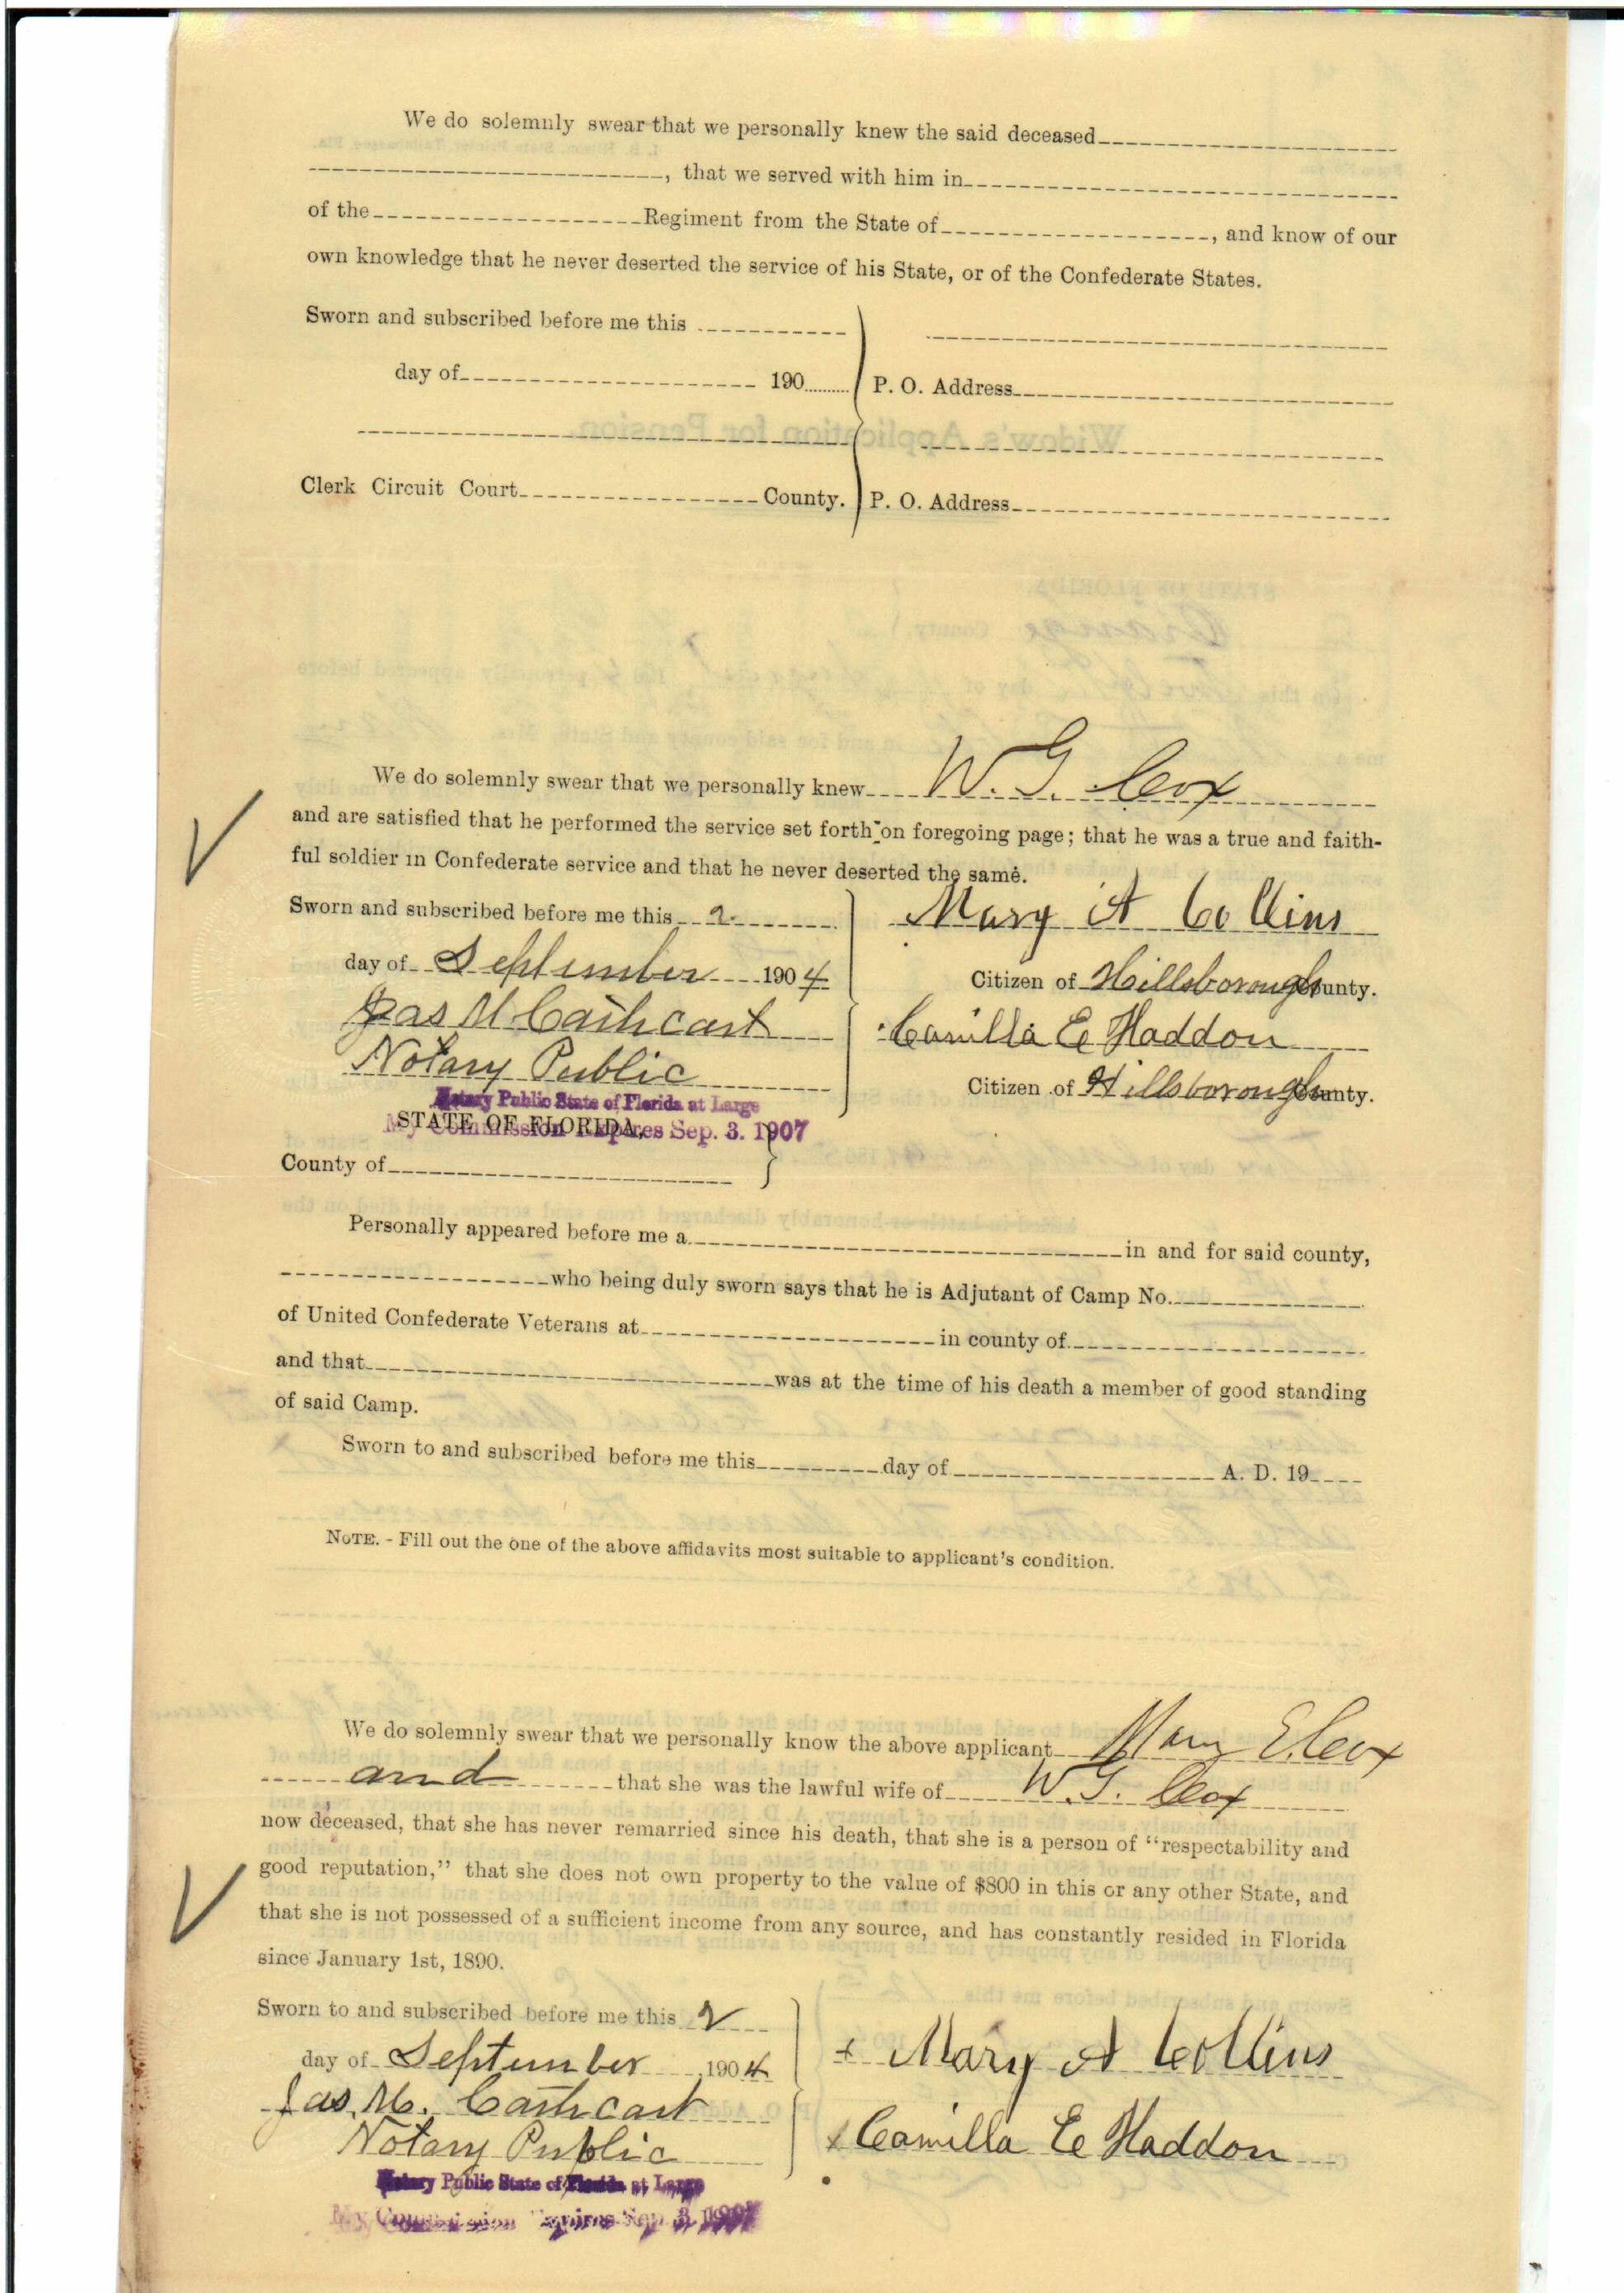 We do solemnly swear that we personally knew the said deceased
, that we served with him in
of the Regiment from the State of , and know of our
own knowledge that he never deserted the service of his State, or of the Confederate States.
Sworn and subscribed before me this
day of 190
P. O. Address
Widow's Application for Pension.
Clerk Circuit Court County.
P. O. Address
STATE OF FLORIDA
Orange County.
We do solemnly swear that we personally knew W. G. Cox
and are satisfied that he performed the service set forth on foregoing page; that he was a true and faith-
ful soldier in Confederate service and that he never deserted the same.
Sworn and subscribed before me this 2
Mary A Collins
day of September 1904
Citizen of Hillsborough County.
Jas M Cathcart
Camilla E Haddon
Notary Public
Citizen of Hillsborough County.
Notary Public State of Florida at Large
My Commission Expires Sep. 3. 1907
STATE OF FLORIDA,
County of
Personally appeared before me a in and for said county,
who being duly sworn says that he is Adjutant of Camp No.
of United Confederate Veterans at in county of
and that was at the time of his death a member of good standing
of said Camp.
Sworn to and subscribed before me this day of A. D. 19
NOTE. - Fill out the one of the above affidavits most suitable to applicant's condition.
We do solemnly swear that we personally know the above applicant Mary E. Cox
and that she was the lawful wife of W. G. Cox
now deceased, that she has never remarried since his death, that she is a person of "respectability and
good reputation," that she does not own property to the value of $800 in this or any other State, and
that she is not possessed of a sufficient income from any source, and has constantly resided in Florida
since January 1st, 1890.
Sworn to and subscribed before me this 2
day of September 1904
x Mary A Collins
Jas. M. Cathcart
x Camilla E Haddon
Notary Public
Notary Public State of Florida at Large
My Commission Expires Sep. 3. 1907